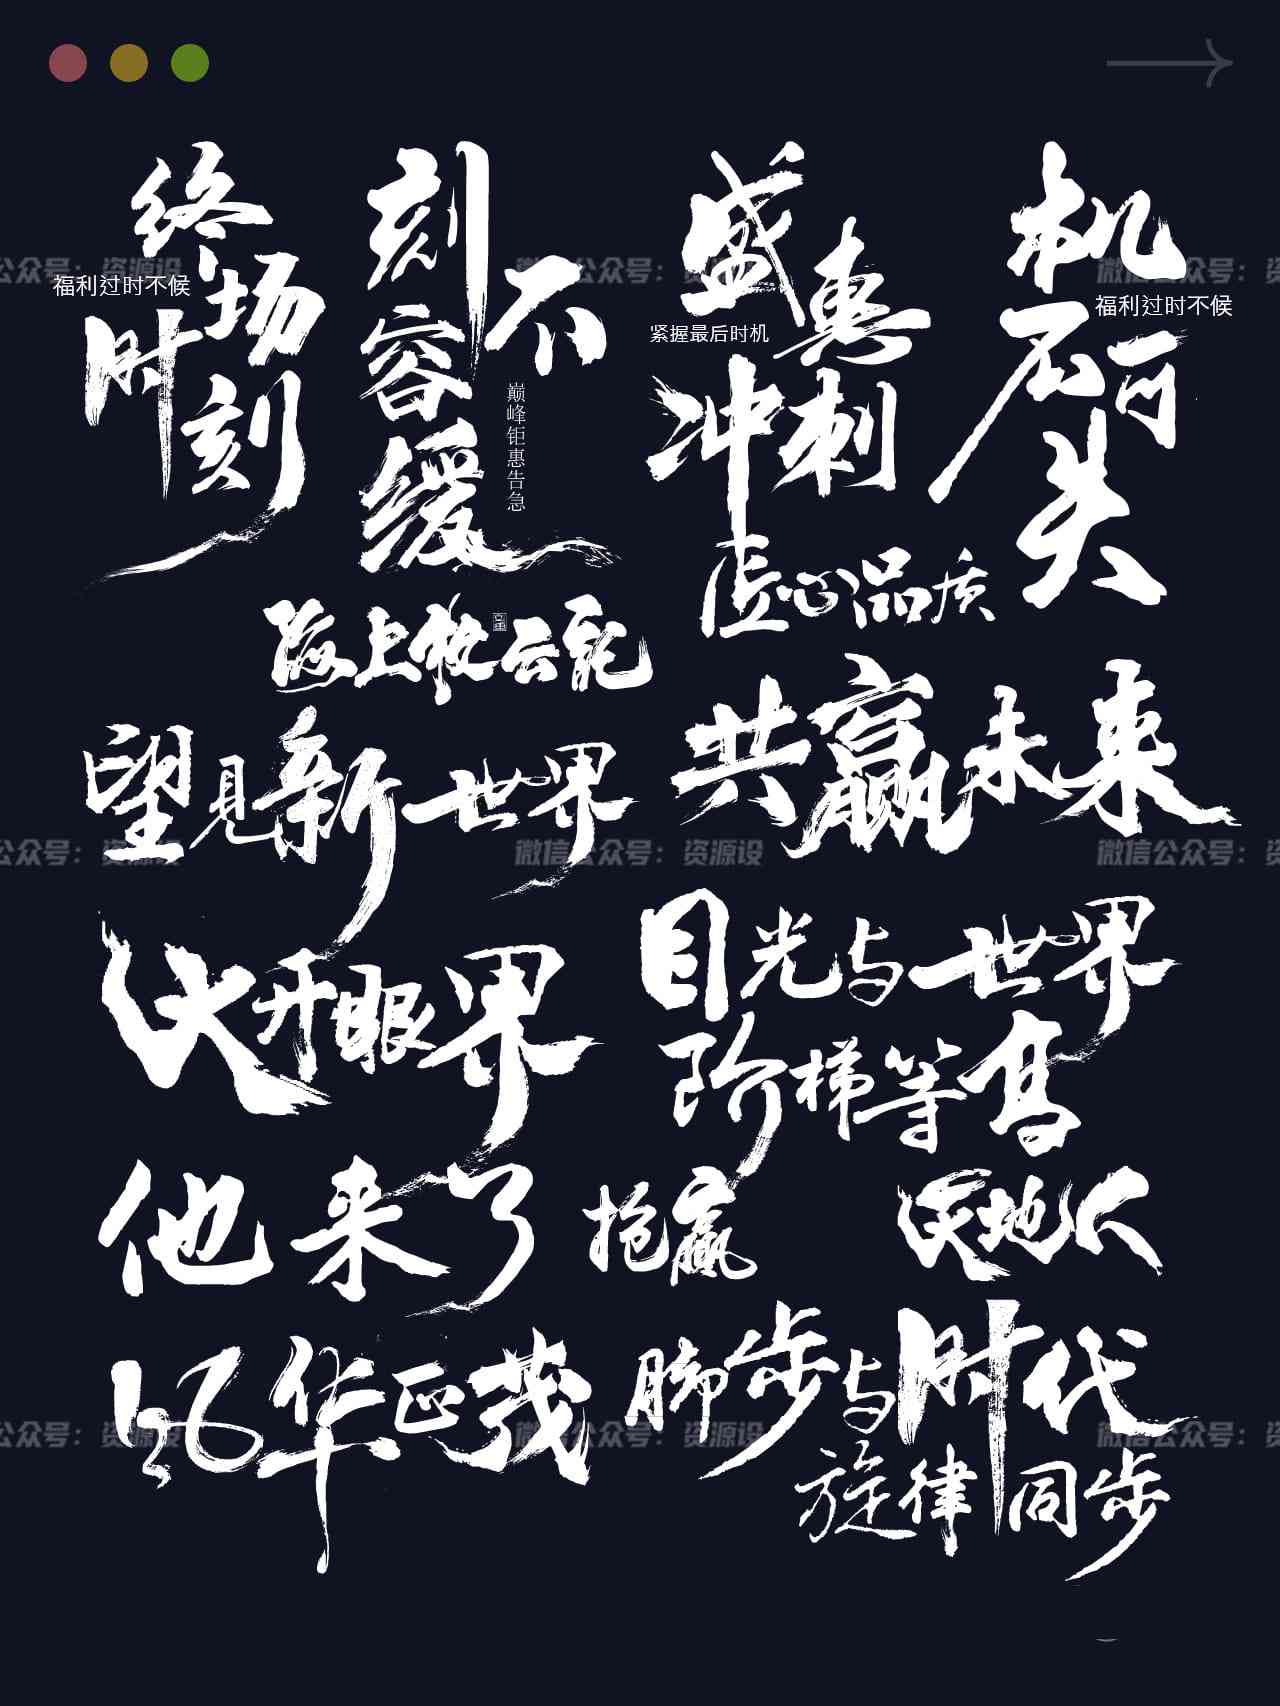 终场
时刻
福利过时不候
刻不
容缓
巅峰钜惠告急
盛惠
冲刺
紧握最后时机
机不可失
福利过时不候
匠心品质
海上牧云记
望见新世界
共赢未来
大开眼界
目光与世界
阶梯等高
他来了
抢赢
天地人
风华正茂
脚步与时代
旋律同步
微信公众号：资源设
公众号：资源设